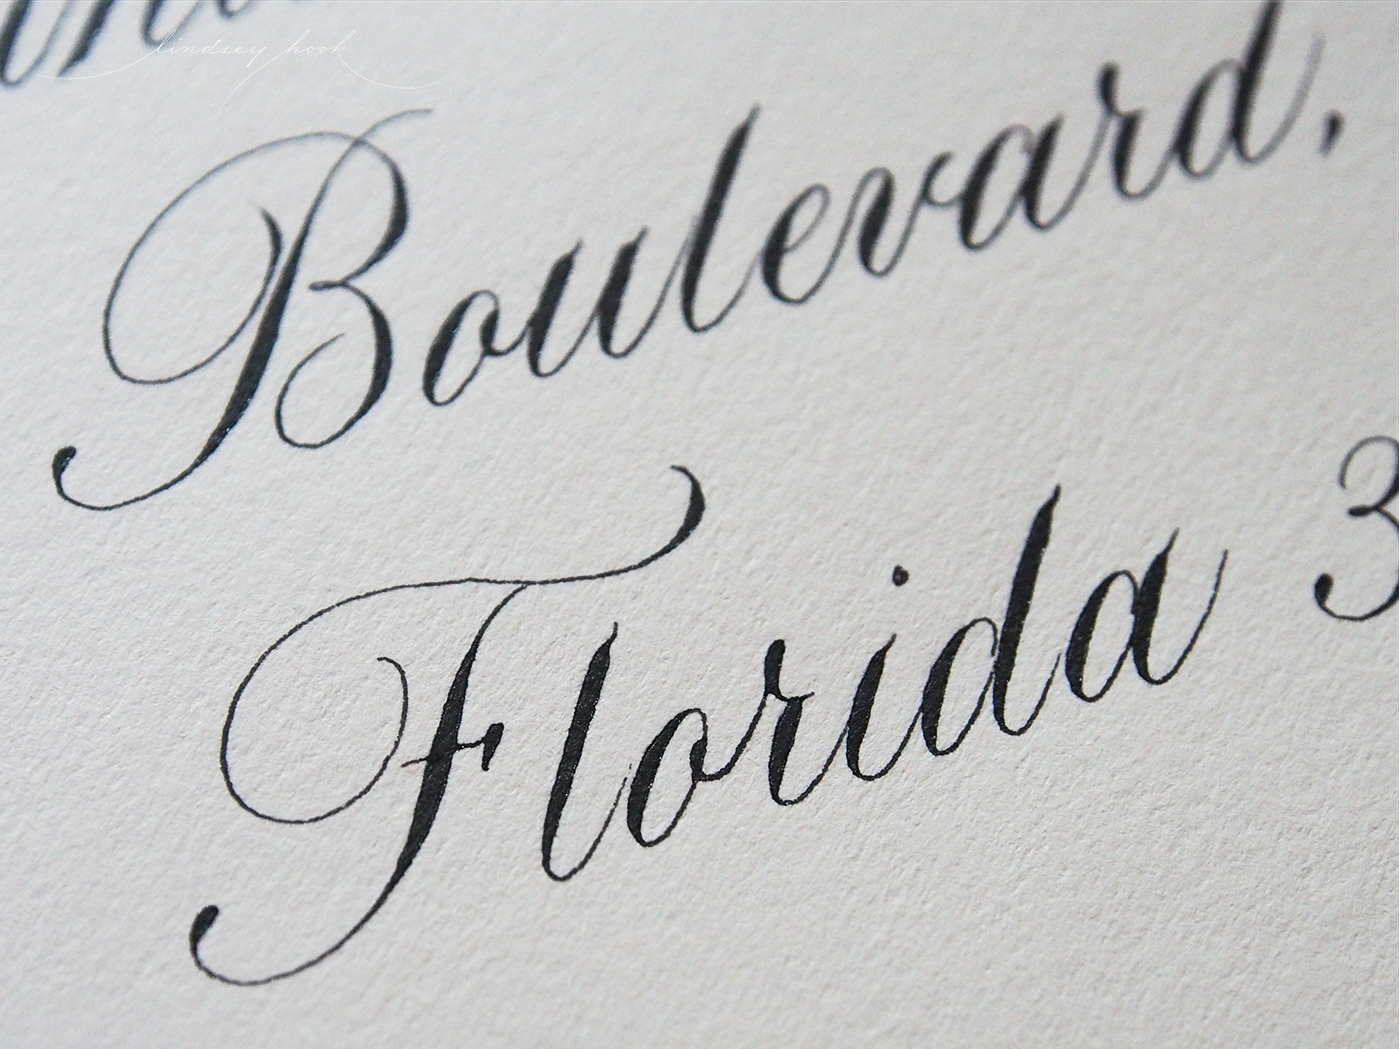 lindsey hook
Boulevard,
Florida 3